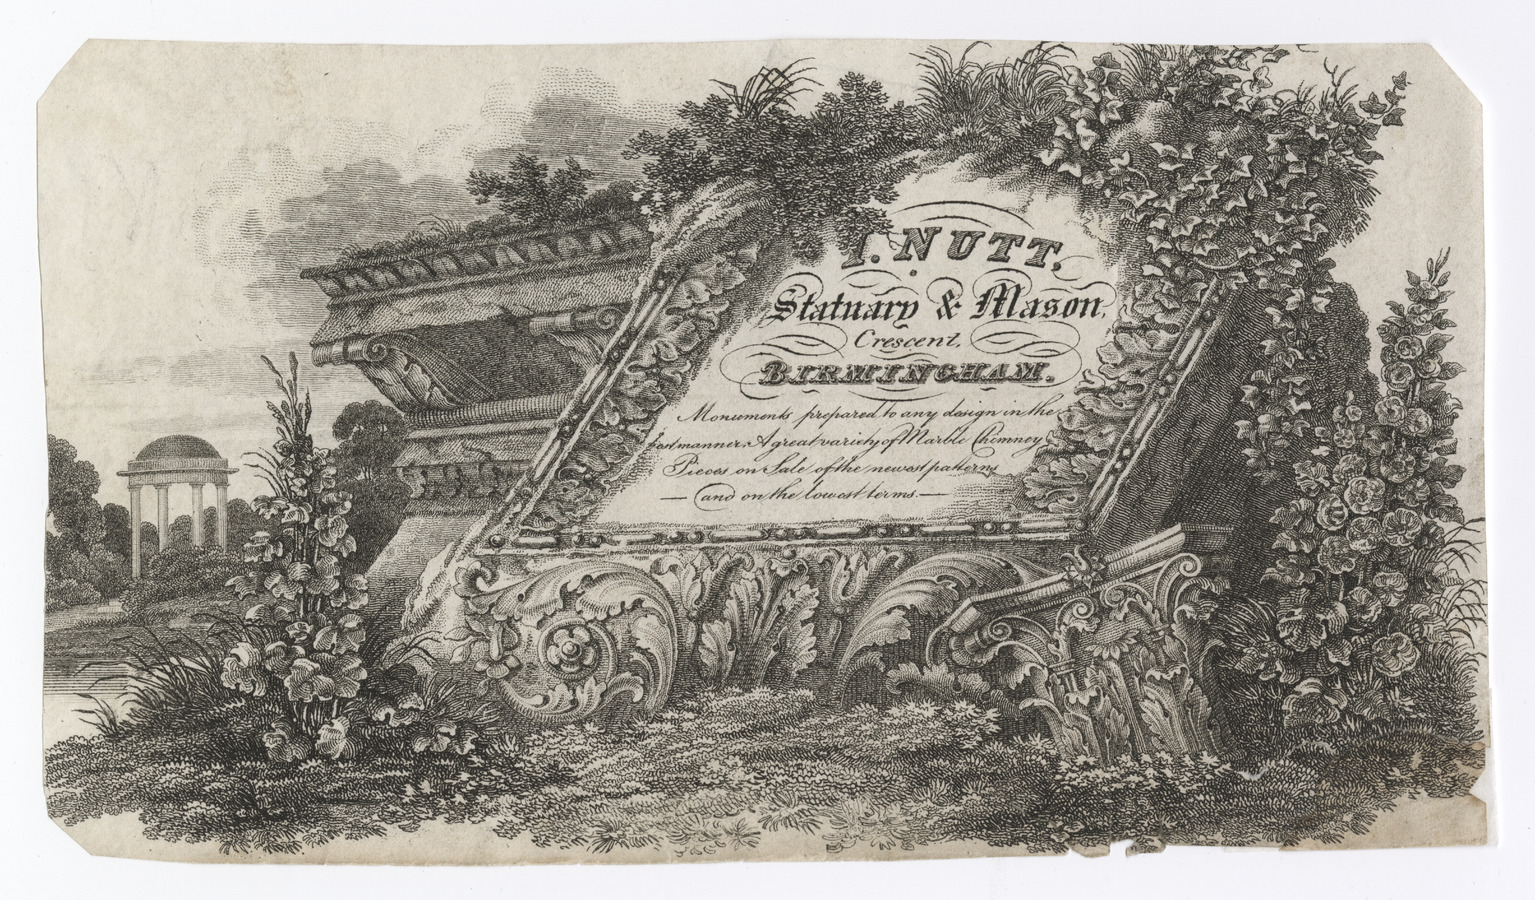 I. NUTT,
Statuary & Mason,
Crescent,
BIRMINGHAM.
Monuments prepared to any design in the
best manner, A great variety of Marble Chimney
Pieces on Sale of the newest patterns
— and on the lowest terms. —